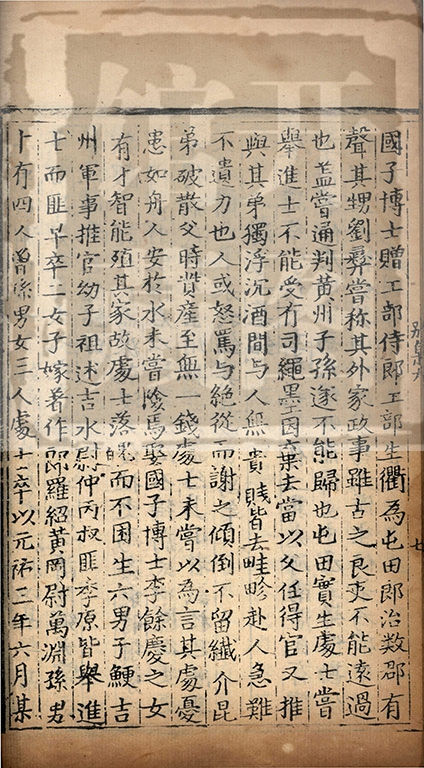 國子博士贈工部侍郎工部生衢為屯田郎治數郡有
聲其甥劉彞嘗稱其外家政事雖古之良吏不能遠過
也蓋嘗通判黃州子孫遂不能歸也屯田實生處士嘗
舉進士不能受有司繩墨因棄去當以父任得官又推
與其弟獨浮沉酒間与人無貴賤皆去畦畛赴人急難
不遺力也人或怒罵与絕從而謝之傾倒不留纖介昆
弟破散父時貲產至無一錢處士未嘗以為言其處憂
患如舟人安於水未嘗隂焉娶國子博士李餘慶之女
有才智能殖其家故處士落魄而不困生六男子鯁吉
州軍事推官幼子祖述吉水尉仲丙叔匪季原皆舉進
士而匪早卒二女子嫁著作郎羅紹黃岡尉萬淵孫男
十有四人曾孫男女三人處士卒以元祐三年六月某
別集九
七